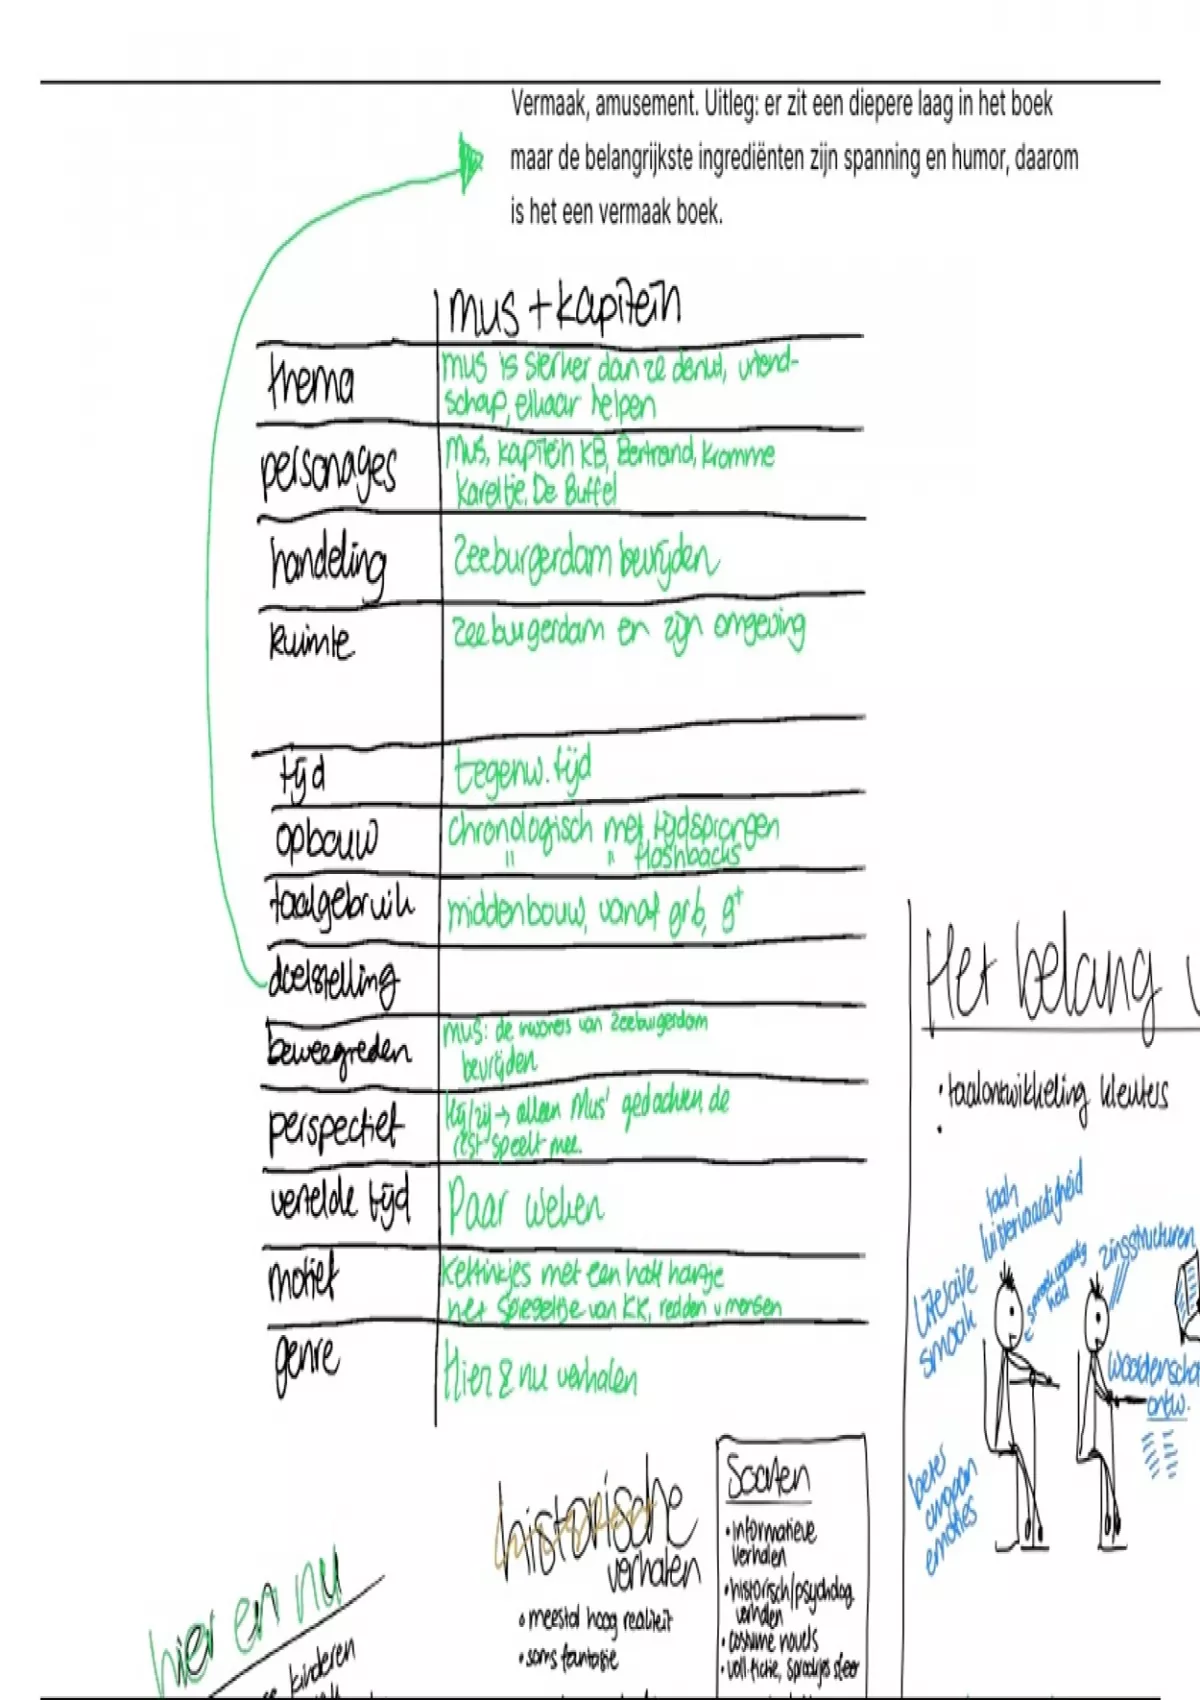 Vermaak, amusement. Uitleg: er zit een diepere laag in het boek
maar de belangrijkste ingrediënten zijn spanning en humor, daarom
is het een vermaak boek.
mus + kapitein
thema
mus is sterker dan ze denkt, vriend-
schap, elkaar helpen
personages
Mus, kapitein KB, Bertrand, Kromme
Kareltje. De Buffel
handeling
Zeeburgerdam bevrijden
Ruimte
Zeeburgerdam en zijn omgeving
tijd
tegenw. tijd
opbouw
chronologisch met tijdsprongen
" " flashbacks
taalgebruik
middenbouw, vanaf gr6, 9+
doelstelling
beweegreden
mus: de inwoners van Zeeburgerdam
bevrijden
perspectief
hij/zij → alleen Mus' gedachten, de
rest speelt mee.
vertelde tijd
Paar weken
motief
Kettinkjes met een half hartje
het spiegeltje van KK, redden v mensen
genre
Hier & nu verhalen
Het belang v
• taalontwikkeling kleuters
•
taal
luistervaardigheid
spreekvaardig
heid
zinsstructuren
Literaire
smaak
woordenscha
ontw.
beter
omgaan
emoties
historische
verhalen
• meestal hoog realiteit
• soms fantasie
Soorten
• informatieve
verhalen
• historisch/psycholog.
verhalen
• costume novels
• voll. fictie, sprookjes sfeer
hier en nu
kinderen